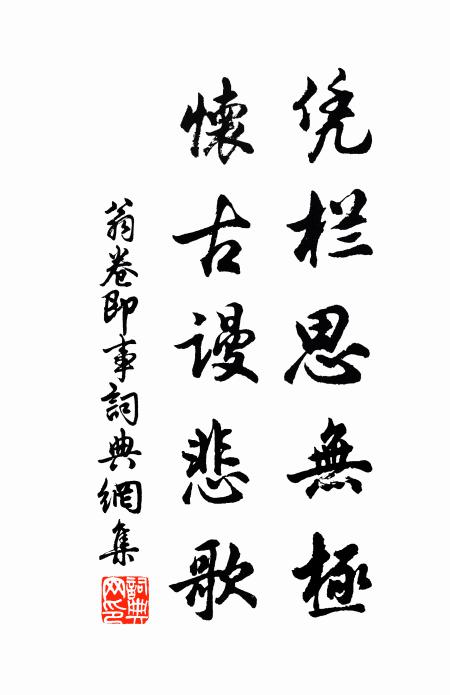 凭栏思無極
懷古謾悲歌
翁卷即事詞典網集
詞典網印